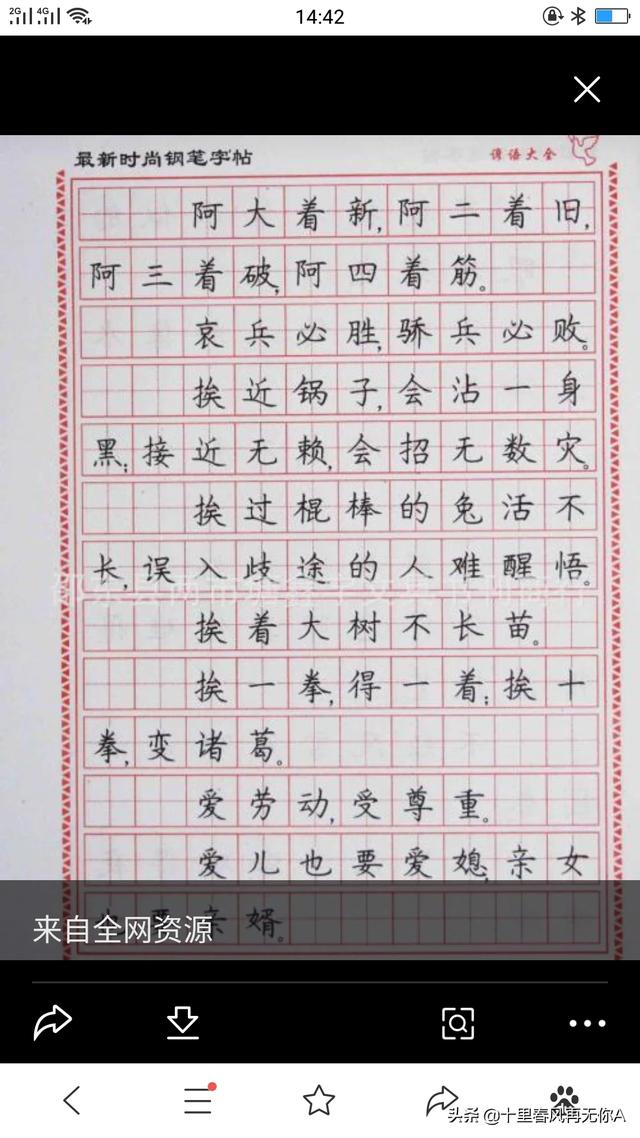 2G 4G 14:42
最新时尚钢笔字帖 谚语大全
阿大着新,阿二着旧,
阿三着破,阿四着筋。
哀兵必胜,骄兵必败。
挨近锅子,会沾一身
黑;接近无赖,会招无数灾。
挨过棍棒的兔活不
长,误入歧途的人难醒悟。
挨着大树不长苗。
挨一拳,得一着;挨十
拳,变诸葛。
爱劳动,受尊重。
爱儿也要爱媳,亲女
也要亲婿。
来自全网资源
头条 @十里春风再无你A